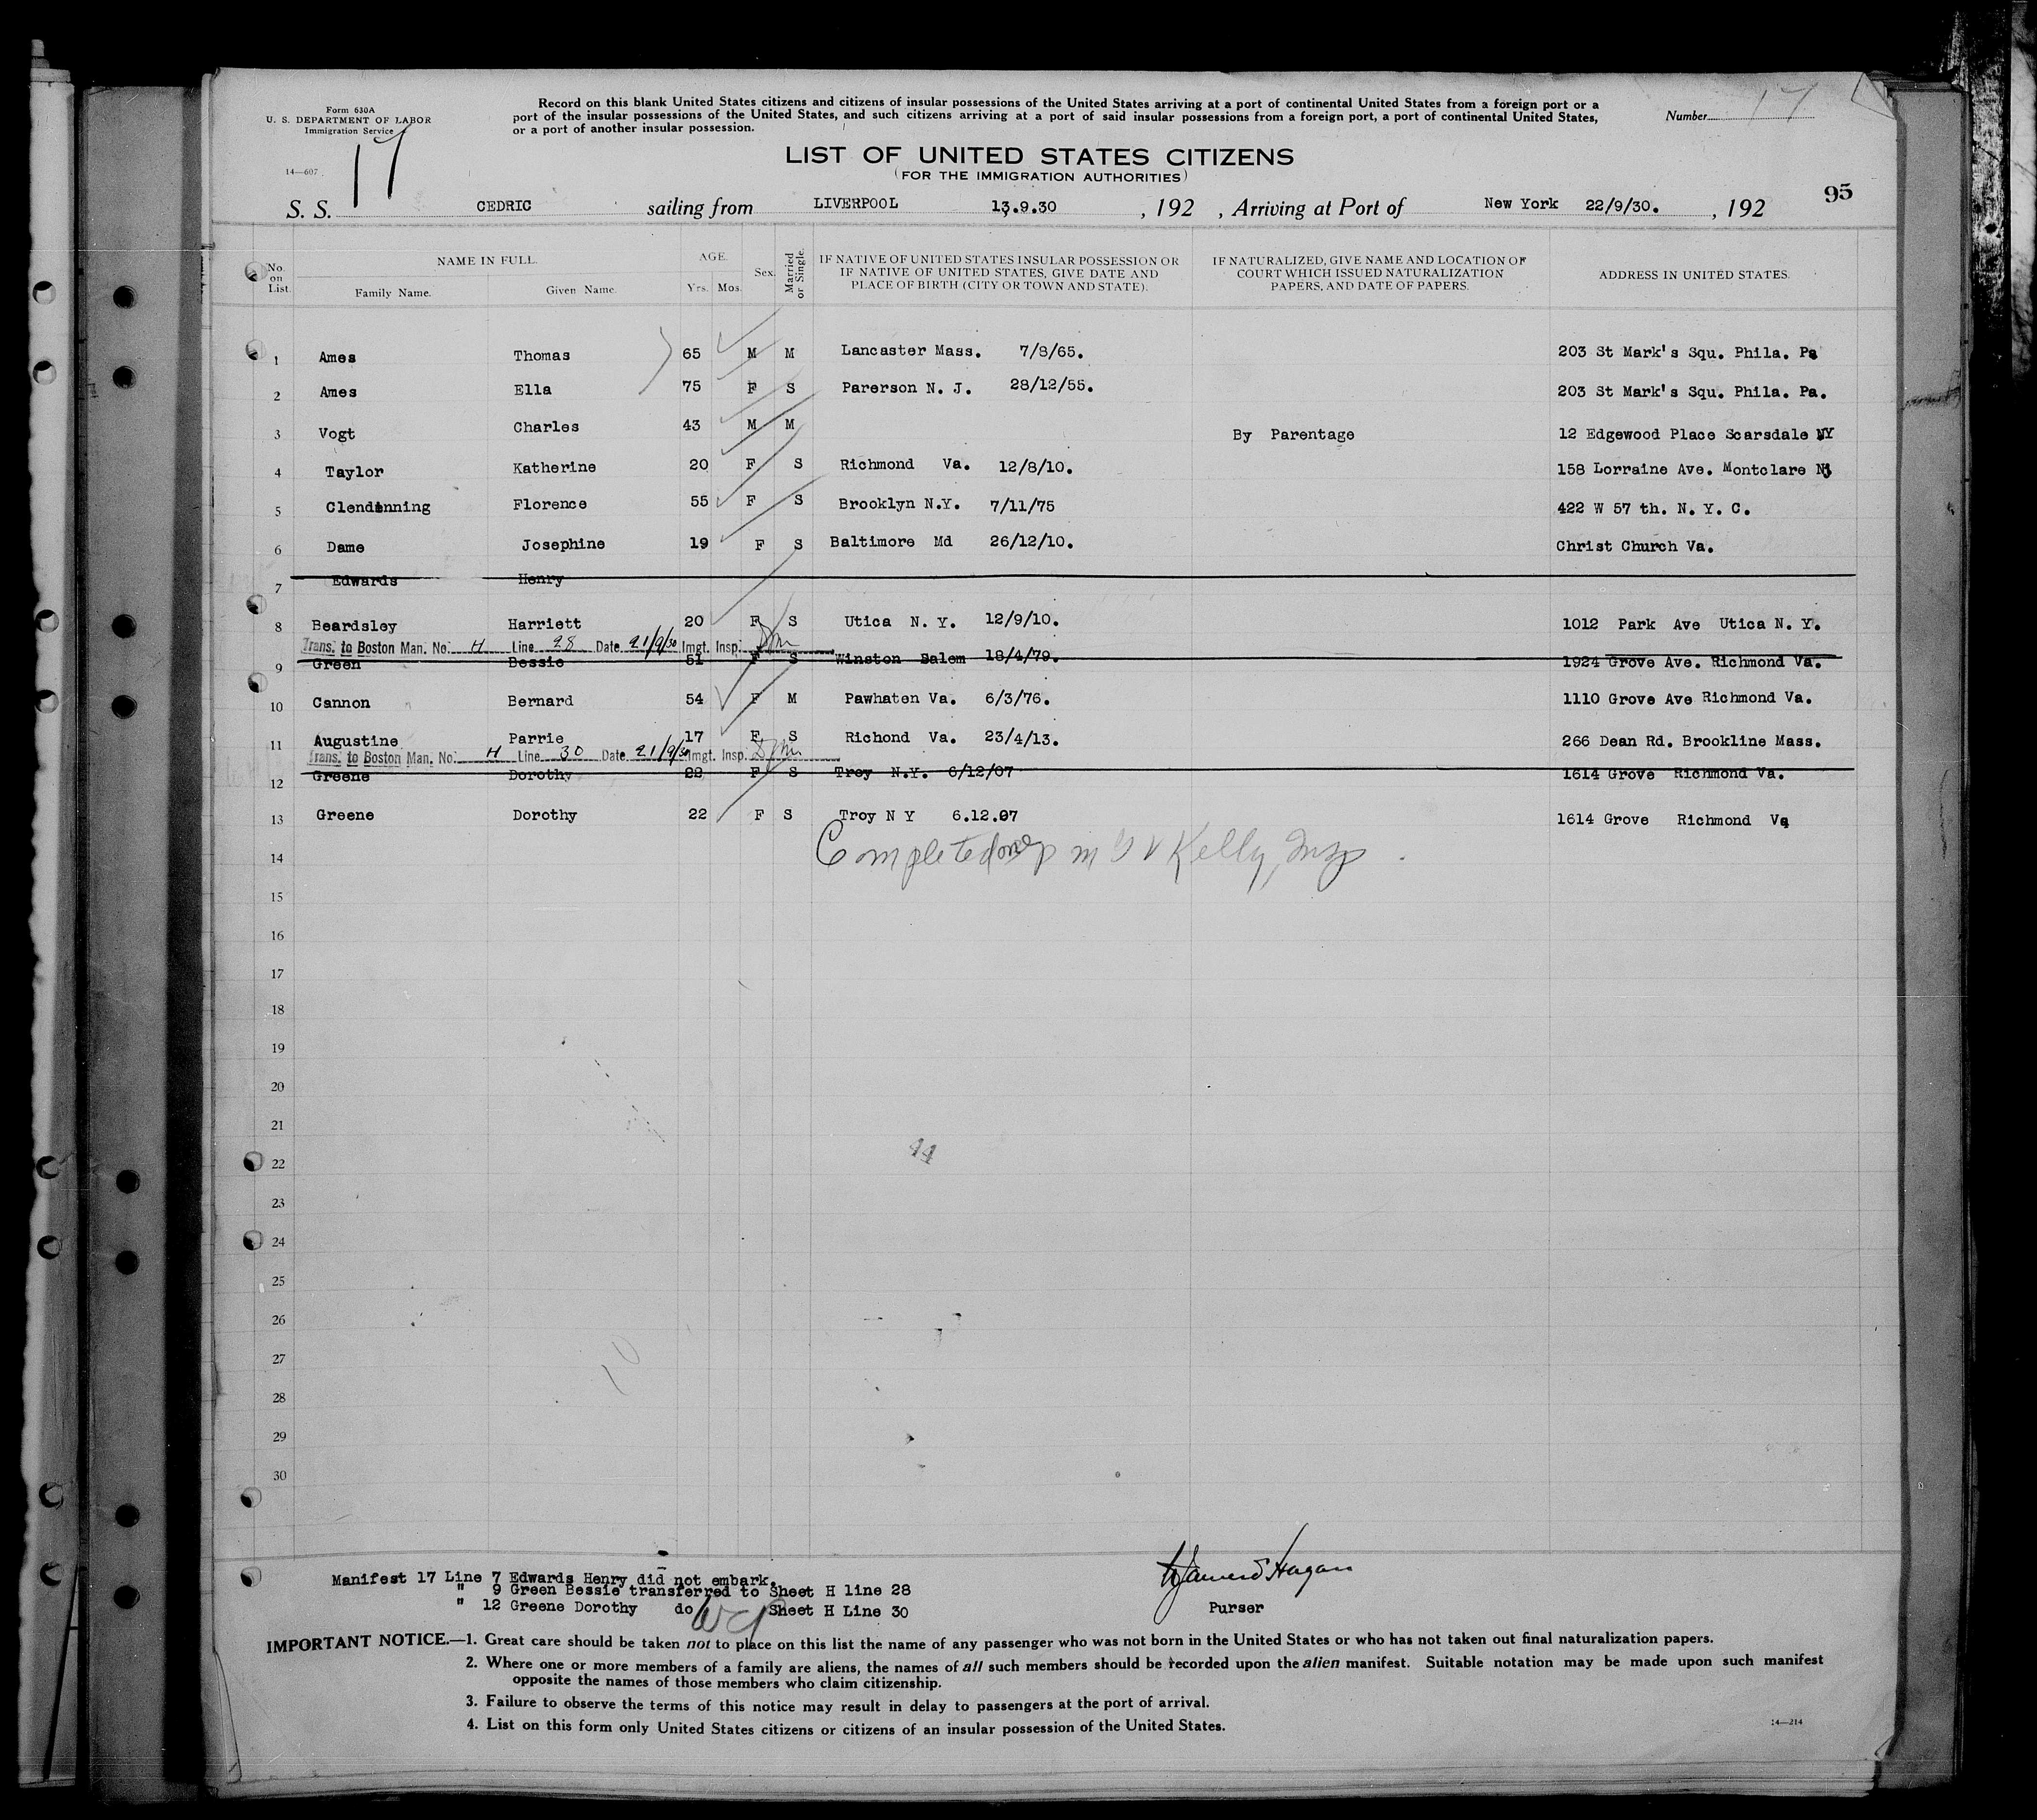 Form 630A
U. S. DEPARTMENT OF LABOR
Immigration Service
14—607
17
Record on this blank United States citizens and citizens of insular possessions of the United States arriving at a port of continental United States from a foreign port or a
port of the insular possessions of the United States, and such citizens arriving at a port of said insular possessions from a foreign port, a port of continental United States,
or a port of another insular possession.
Number 17
LIST OF UNITED STATES CITIZENS
(FOR THE IMMIGRATION AUTHORITIES)
S. S. CEDRIC sailing from LIVERPOOL 13.9.30 , 192 , Arriving at Port of New York 22/9/30. , 192
95
No. on List. NAME IN FULL. Family Name. Given Name. AGE. Yrs. Mos. Sex. Married or Single. IF NATIVE OF UNITED STATES INSULAR POSSESSION OR IF NATIVE OF UNITED STATES, GIVE DATE AND PLACE OF BIRTH (CITY OR TOWN AND STATE). IF NATURALIZED, GIVE NAME AND LOCATION OF COURT WHICH ISSUED NATURALIZATION PAPERS, AND DATE OF PAPERS. ADDRESS IN UNITED STATES.
1 Ames Thomas 65 M M Lancaster Mass. 7/8/65. 203 St Mark's Squ. Phila. Pa
2 Ames Ella 75 F S Parerson N. J. 28/12/55. 203 St Mark's Squ. Phila. Pa.
3 Vogt Charles 43 M M By Parentage 12 Edgewood Place Scarsdale NY
4 Taylor Katherine 20 F S Richmond Va. 12/8/10. 158 Lorraine Ave. Montclare NJ
5 Clendinning Florence 55 F S Brooklyn N.Y. 7/11/75 422 W 57 th. N. Y. C.
6 Dame Josephine 19 F S Baltimore Md 26/12/10. Christ Church Va.
7 Edwards Henry
8 Beardsley Harriett 20 F S Utica N. Y. 12/9/10. 1012 Park Ave Utica N. Y.
Trans. to Boston Man. No. H Line 28 Date 21/9/30 Imgt. Insp.
9 Green Bessie 51 F S Winston Salem 18/4/79. 1924 Grove Ave. Richmond Va.
10 Cannon Bernard 54 F M Pawhaten Va. 6/3/76. 1110 Grove Ave Richmond Va.
11 Augustine Parrie 17 F S Richond Va. 23/4/13. 266 Dean Rd. Brookline Mass.
Trans. to Boston Man. No. H Line 30 Date 21/9/30 Imgt. Insp.
12 Greene Dorothy 22 F S Troy N.Y. 6/12/07 1614 Grove Richmond Va.
13 Greene Dorothy 22 F S Troy N Y 6.12.07 1614 Grove Richmond Va
14 Completed Kelly, Insp
15
16
17
18
19
20
21
22 44
23
24
25
26
27
28
29
30
Manifest 17 Line 7 Edwards Henry did not embark.
" 9 Green Bessie transferred to Sheet H line 28
" 12 Greene Dorothy do Sheet H Line 30
Purser
IMPORTANT NOTICE.—1. Great care should be taken not to place on this list the name of any passenger who was not born in the United States or who has not taken out final naturalization papers.
2. Where one or more members of a family are aliens, the names of all such members should be recorded upon the alien manifest. Suitable notation may be made upon such manifest
opposite the names of those members who claim citizenship.
3. Failure to observe the terms of this notice may result in delay to passengers at the port of arrival.
4. List on this form only United States citizens or citizens of an insular possession of the United States.
14—214